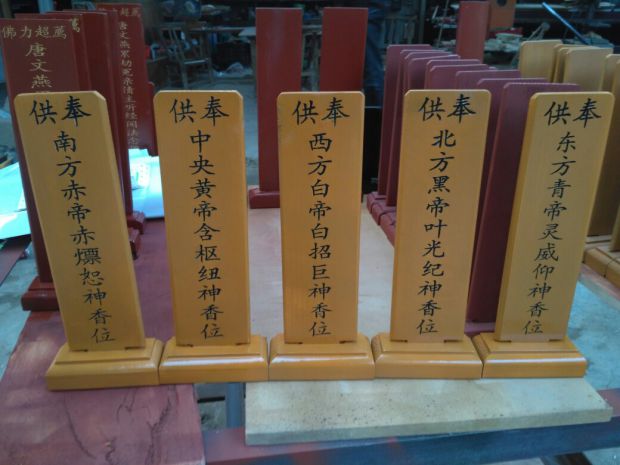 佛力超薦
唐文燕
力超薦
唐文燕累劫冤亲债主听经闻法念
供奉
南方赤帝赤熛恕神香位
供奉
中央黄帝含枢纽神香位
供奉
西方白帝白招巨神香位
供奉
北方黑帝叶光纪神香位
供奉
东方青帝灵威仰神香位